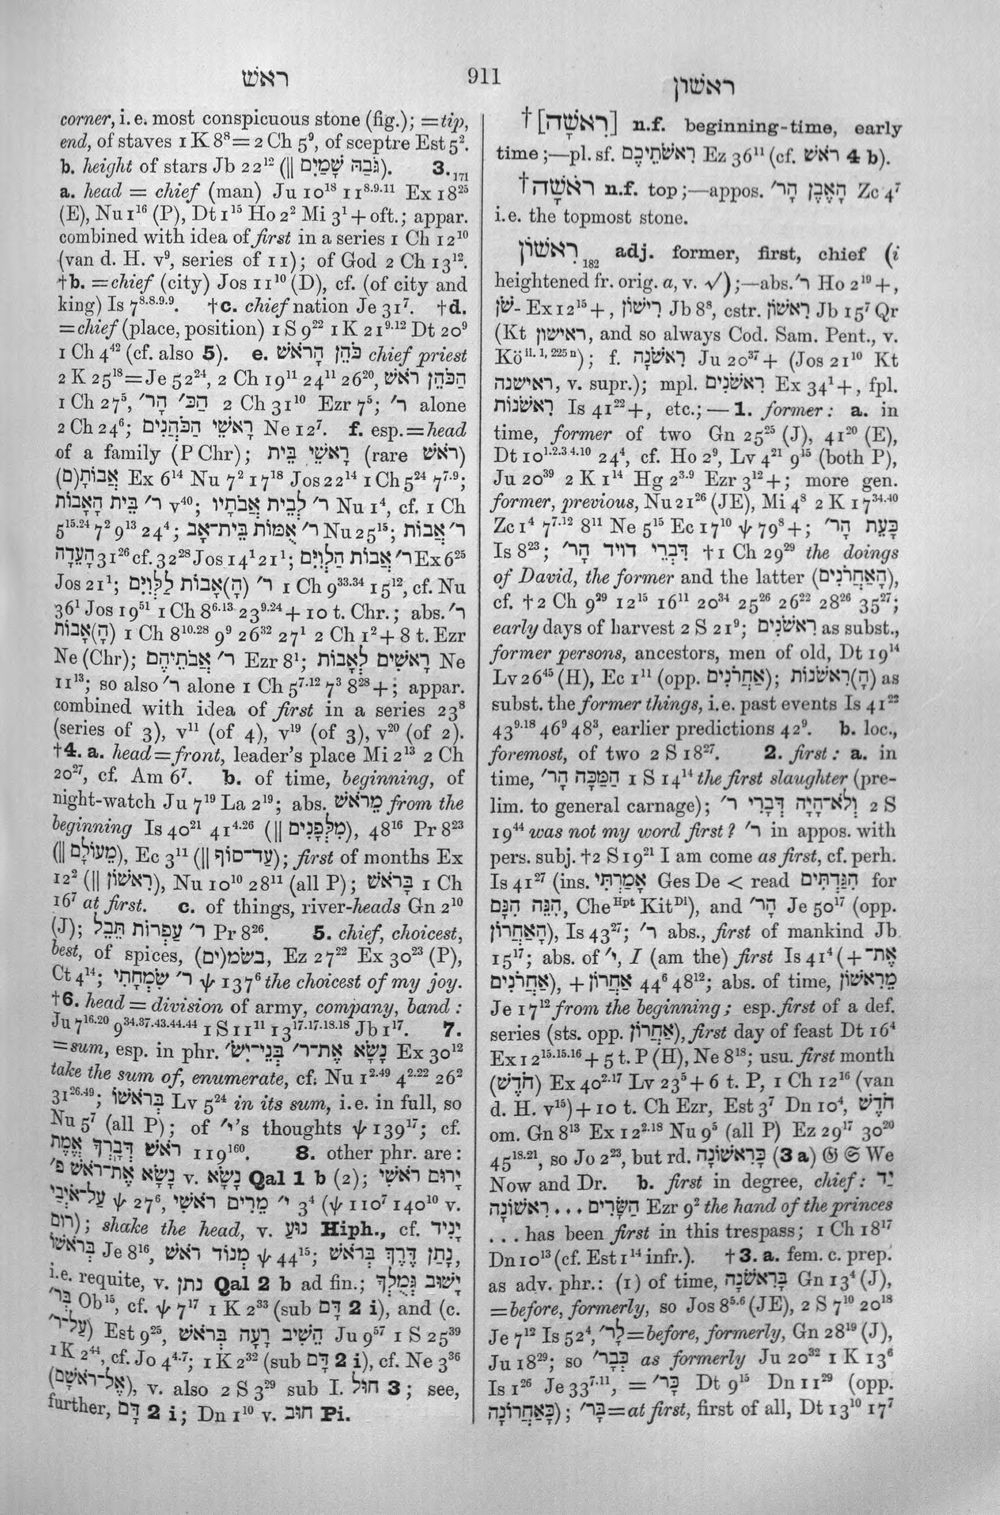 ראשׁ
911
ראשׁון
corner, i. e. most conspicuous stone (fig.); = tip,
end, of staves 1 K 8⁸ = 2 Ch 5⁹, of sceptre Est 5².
b. height of stars Jb 22¹² (‖ גֹּבַהּ שָׁמָיִם). 3.₁₇₁
a. head = chief (man) Ju 10¹⁸ 11⁸·⁹·¹¹ Ex 18²⁵
(E), Nu 1¹⁶ (P), Dt 1¹⁵ Ho 2² Mi 3¹ + oft.; appar.
combined with idea of first in a series 1 Ch 12¹⁰
(van d. H. v⁹, series of 11); of God 2 Ch 13¹².
†b. = chief (city) Jos 11¹⁰ (D), cf. (of city and
king) Is 7⁸·⁸·⁹·⁹. †c. chief nation Je 31⁷. †d.
= chief (place, position) 1 S 9²² 1 K 21⁹·¹² Dt 20⁹
1 Ch 4⁴² (cf. also 5). e. כֹּהֵן הָראֹשׁ chief priest
2 K 25¹⁸ = Je 52²⁴, 2 Ch 19¹¹ 24¹¹ 26²⁰, הַכֹּהֵן ראֹשׁ
1 Ch 27⁵, הַכּ׳ הָר׳ 2 Ch 31¹⁰ Ezr 7⁵; ר׳ alone
2 Ch 24⁶; רָאשֵׁי הַכֹּהֲנִים Ne 12⁷. f. esp. = head
of a family (P Chr); רָאשֵׁי בֵית (rare ראֹשׁ)
אֲבוֹתָ(ם) Ex 6¹⁴ Nu 7² 17¹⁸ Jos 22¹⁴ 1 Ch 5²⁴ 7⁷·⁹;
ר׳ בֵּית הָאָבוֹת v⁴⁰; ר׳ לְבֵית אֲבֹתָיו Nu 1⁴, cf. 1 Ch
5¹⁵·²⁴ 7² 9¹³ 24⁴; ר׳ אֻמּוֹת בֵּית־אָב Nu 25¹⁵; ר׳ אֲבוֹת
הָעֵדָה 31²⁶ cf. 32²⁸ Jos 14¹ 21¹; ר׳ אֲבוֹת הַלְוִיִּם Ex 6²⁵
Jos 21¹; ר׳ (הָ)אָבוֹת לַלְוִיִּם 1 Ch 9³³·³⁴ 15¹², cf. Nu
36¹ Jos 19⁵¹ 1 Ch 8⁶·¹³ 23⁹·²⁴ + 10 t. Chr.; abs. ר׳
(הָ)אָבוֹת 1 Ch 8¹⁰·²⁸ 9⁹ 26³² 27¹ 2 Ch 1² + 8 t. Ezr
Ne (Chr); ר׳ אֲבֹתֵיהֶם Ezr 8¹; רָאשִׁים לְאָבוֹת Ne
11¹³; so also ר׳ alone 1 Ch 5⁷·¹² 7³ 8²⁸ +; appar.
combined with idea of first in a series 23⁸
(series of 3), v¹¹ (of 4), v¹⁹ (of 3), v²⁰ (of 2).
†4. a. head = front, leader's place Mi 2¹³ 2 Ch
20²⁷, cf. Am 6⁷. b. of time, beginning, of
night-watch Ju 7¹⁹ La 2¹⁹; abs. מֵראֹשׁ from the
beginning Is 40²¹ 41⁴·²⁶ (‖ מִלְּפָנִים), 48¹⁶ Pr 8²³
(‖ מֵעוֹלָם), Ec 3¹¹ (‖ עַד־סוֹף); first of months Ex
12² (‖ רִאשׁוֹן), Nu 10¹⁰ 28¹¹ (all P); בְּראֹשׁ 1 Ch
16⁷ at first. c. of things, river-heads Gn 2¹⁰
(J); ר׳ עַפְרוֹת תֵּבֵל Pr 8²⁶. 5. chief, choicest,
best, of spices, בשׂמ(ים), Ez 27²² Ex 30²³ (P),
Ct 4¹⁴; ר׳ שִׂמְחָתִי ψ 137⁶ the choicest of my joy.
†6. head = division of army, company, band:
Ju 7¹⁶·²⁰ 9³⁴·³⁷·⁴³·⁴⁴·⁴⁴ 1 S 11¹¹ 13¹⁷·¹⁷·¹⁸·¹⁸ Jb 1¹⁷. 7.
= sum, esp. in phr. נָשָׂא אֶת־ר׳ בְּנֵי־יִשׂ׳ Ex 30¹²
take the sum of, enumerate, cf. Nu 1²·⁴⁹ 4²·²² 26²
31²⁶·⁴⁹; בְּראֹשׁוֹ Lv 5²⁴ in its sum, i.e. in full, so
Nu 5⁷ (all P); of י׳'s thoughts ψ 139¹⁷; cf.
ראֹשׁ דְּבָרְךָ אֱמֶת 119¹⁶⁰. 8. other phr. are:
נָשָׂא אֶת־ראֹשׁ פ׳ v. נָשָׂא Qal 1 b (2); יָרוּם ראֹשִׁי
עַל־אֹיְבַי ψ 27⁶, מֵרִים ראֹשִׁי י׳ 3⁴ (ψ 110⁷ 140¹⁰ v.
רום); shake the head, v. נוּעַ Hiph., cf. יָנִיד
בְּראֹשׁוֹ Je 8¹⁶, מְנוֹד ראֹשׁ ψ 44¹⁵; נָתַן דֶּרֶךְ בְּראֹשׁ,
i.e. requite, v. נתן Qal 2 b ad fin.; יָשׁוּב גְּמֻלְךָ
בְּר׳ Ob¹⁵, cf. ψ 7¹⁷ 1 K 2³³ (sub דָּם 2 i), and (c.
עַל־ר׳) Est 9²⁵, הֵשִׁיב רָעָה בְּראֹשׁ Ju 9⁵⁷ 1 S 25³⁹
1 K 2⁴⁴, cf. Jo 4⁴·⁷; 1 K 2³² (sub דָּם 2 i), cf. Ne 3³⁶
(אֶל־ראֹשָׁם), v. also 2 S 3²⁹ sub I. חוּל 3; see,
further, דָּם 2 i; Dn 1¹⁰ v. חוּב Pi.
† [רִאשָׁה] n.f. beginning-time, early
time;—pl. sf. רִאשֹׁתֵיכֶם Ez 36¹¹ (cf. ראֹשׁ 4 b).
† ראֹשָׁה n.f. top;—appos. הָאֶבֶן הָר׳ Zc 4⁷
i.e. the topmost stone.
רִאשׁוֹן₁₈₂ adj. former, first, chief (i
heightened fr. orig. a, v. √);—abs. ר׳ Ho 2¹⁹ +,
שֹׁן- Ex 12¹⁵ +, רִישׁוֹן Jb 8⁸, cstr. רִאשׁוֹן Jb 15⁷ Qr
(Kt ראישון, and so always Cod. Sam. Pent., v.
Kö ii. 1, 225 n); f. רִאשֹׁנָה Ju 20³⁷ + (Jos 21¹⁰ Kt
ראישנה, v. supr.); mpl. רִאשֹׁנִים Ex 34¹ +, fpl.
רִאשֹׁנוֹת Is 41²² +, etc.;—1. former: a. in
time, former of two Gn 25²⁵ (J), 41²⁰ (E),
Dt 10¹·²·³·⁴·¹⁰ 24⁴, cf. Ho 2⁹, Lv 4²¹ 9¹⁵ (both P),
Ju 20³⁹ 2 K 1¹⁴ Hg 2³·⁹ Ezr 3¹² +; more gen.
former, previous, Nu 21²⁶ (JE), Mi 4⁸ 2 K 17³⁴·⁴⁰
Zc 1⁴ 7⁷·¹² 8¹¹ Ne 5¹⁵ Ec 1⁷¹⁰ ψ 79⁸ +; כָּעֵת הָר׳
Is 8²³; דִּבְרֵי דויד הָר׳ † 1 Ch 29²⁹ the doings
of David, the former and the latter (הָאַחֲרֹנִים),
cf. † 2 Ch 9²⁹ 12¹⁵ 16¹¹ 20³⁴ 25²⁶ 26²² 28²⁶ 35²⁷;
early days of harvest 2 S 21⁹; רִאשֹׁנִים as subst.,
former persons, ancestors, men of old, Dt 19¹⁴
Lv 26⁴⁵ (H), Ec 1¹¹ (opp. אַחֲרֹנִים); (הָ)רִאשֹׁנוֹת as
subst. the former things, i.e. past events Is 41²²
43⁹·¹⁸ 46⁹ 48³, earlier predictions 42⁹. b. loc.,
foremost, of two 2 S 18²⁷. 2. first: a. in
time, הַמַּכָּה הָר׳ 1 S 14¹⁴ the first slaughter (pre-
lim. to general carnage); וְלֹא־הָיָה דְּבָרִי ר׳ 2 S
19⁴⁴ was not my word first? ר׳ in appos. with
pers. subj. † 2 S 19²¹ I am come as first, cf. perh.
Is 41²⁷ (ins. אָמַרְתִּי Ges De < read הִגַּדְתִּים for
הִנֵּה הִנָּם, Che Hpt Kit Di), and הָר׳ Je 50¹⁷ (opp.
הָאַחֲרוֹן), Is 43²⁷; ר׳ abs., first of mankind Jb
15¹⁷; abs. of י׳, I (am the) first Is 41⁴ (+ אֶת־
אַחֲרֹנִים), + אַחֲרוֹן 44⁶ 48¹²; abs. of time, מֵרִאשׁוֹן
Je 17¹² from the beginning; esp. first of a def.
series (sts. opp. אַחֲרוֹן), first day of feast Dt 16⁴
Ex 12¹⁵·¹⁵·¹⁶ + 5 t. P (H), Ne 8¹⁸; usu. first month
(חֹדֶשׁ) Ex 40²·¹⁷ Lv 23⁵ + 6 t. P, 1 Ch 12¹⁶ (van
d. H. v¹⁵) + 10 t. Ch Ezr, Est 3⁷ Dn 10⁴, חֹדֶשׁ
om. Gn 8¹³ Ex 12²·¹⁸ Nu 9⁵ (all P) Ez 29¹⁷ 30²⁰
45¹⁸·²¹, so Jo 2²³, but rd. כָּרִאשׁוֹנָה (3 a) 𝔊 𝔖 We
Now and Dr. b. first in degree, chief: יַד
הַשָּׂרִים . . . רִאשׁוֹנָה Ezr 9² the hand of the princes
. . . has been first in this trespass; 1 Ch 18¹⁷
Dn 10¹³ (cf. Est 1¹⁴ infr.). †3. a. fem. c. prep.
as adv. phr.: (1) of time, בָּרִאשֹׁנָה Gn 13⁴ (J),
= before, formerly, so Jos 8⁵·⁶ (JE), 2 S 7¹⁰ 20¹⁸
Je 7¹² Is 52⁴, לָר׳ = before, formerly, Gn 28¹⁹ (J),
Ju 18²⁹; so כְּבָר׳ as formerly Ju 20³² 1 K 13⁶
Is 1²⁶ Je 33⁷·¹¹, = כָּר׳ Dt 9¹⁸ Dn 11²⁹ (opp.
כָּאַחֲרוֹנָה); בָּר׳ = at first, first of all, Dt 13¹⁰ 17⁷